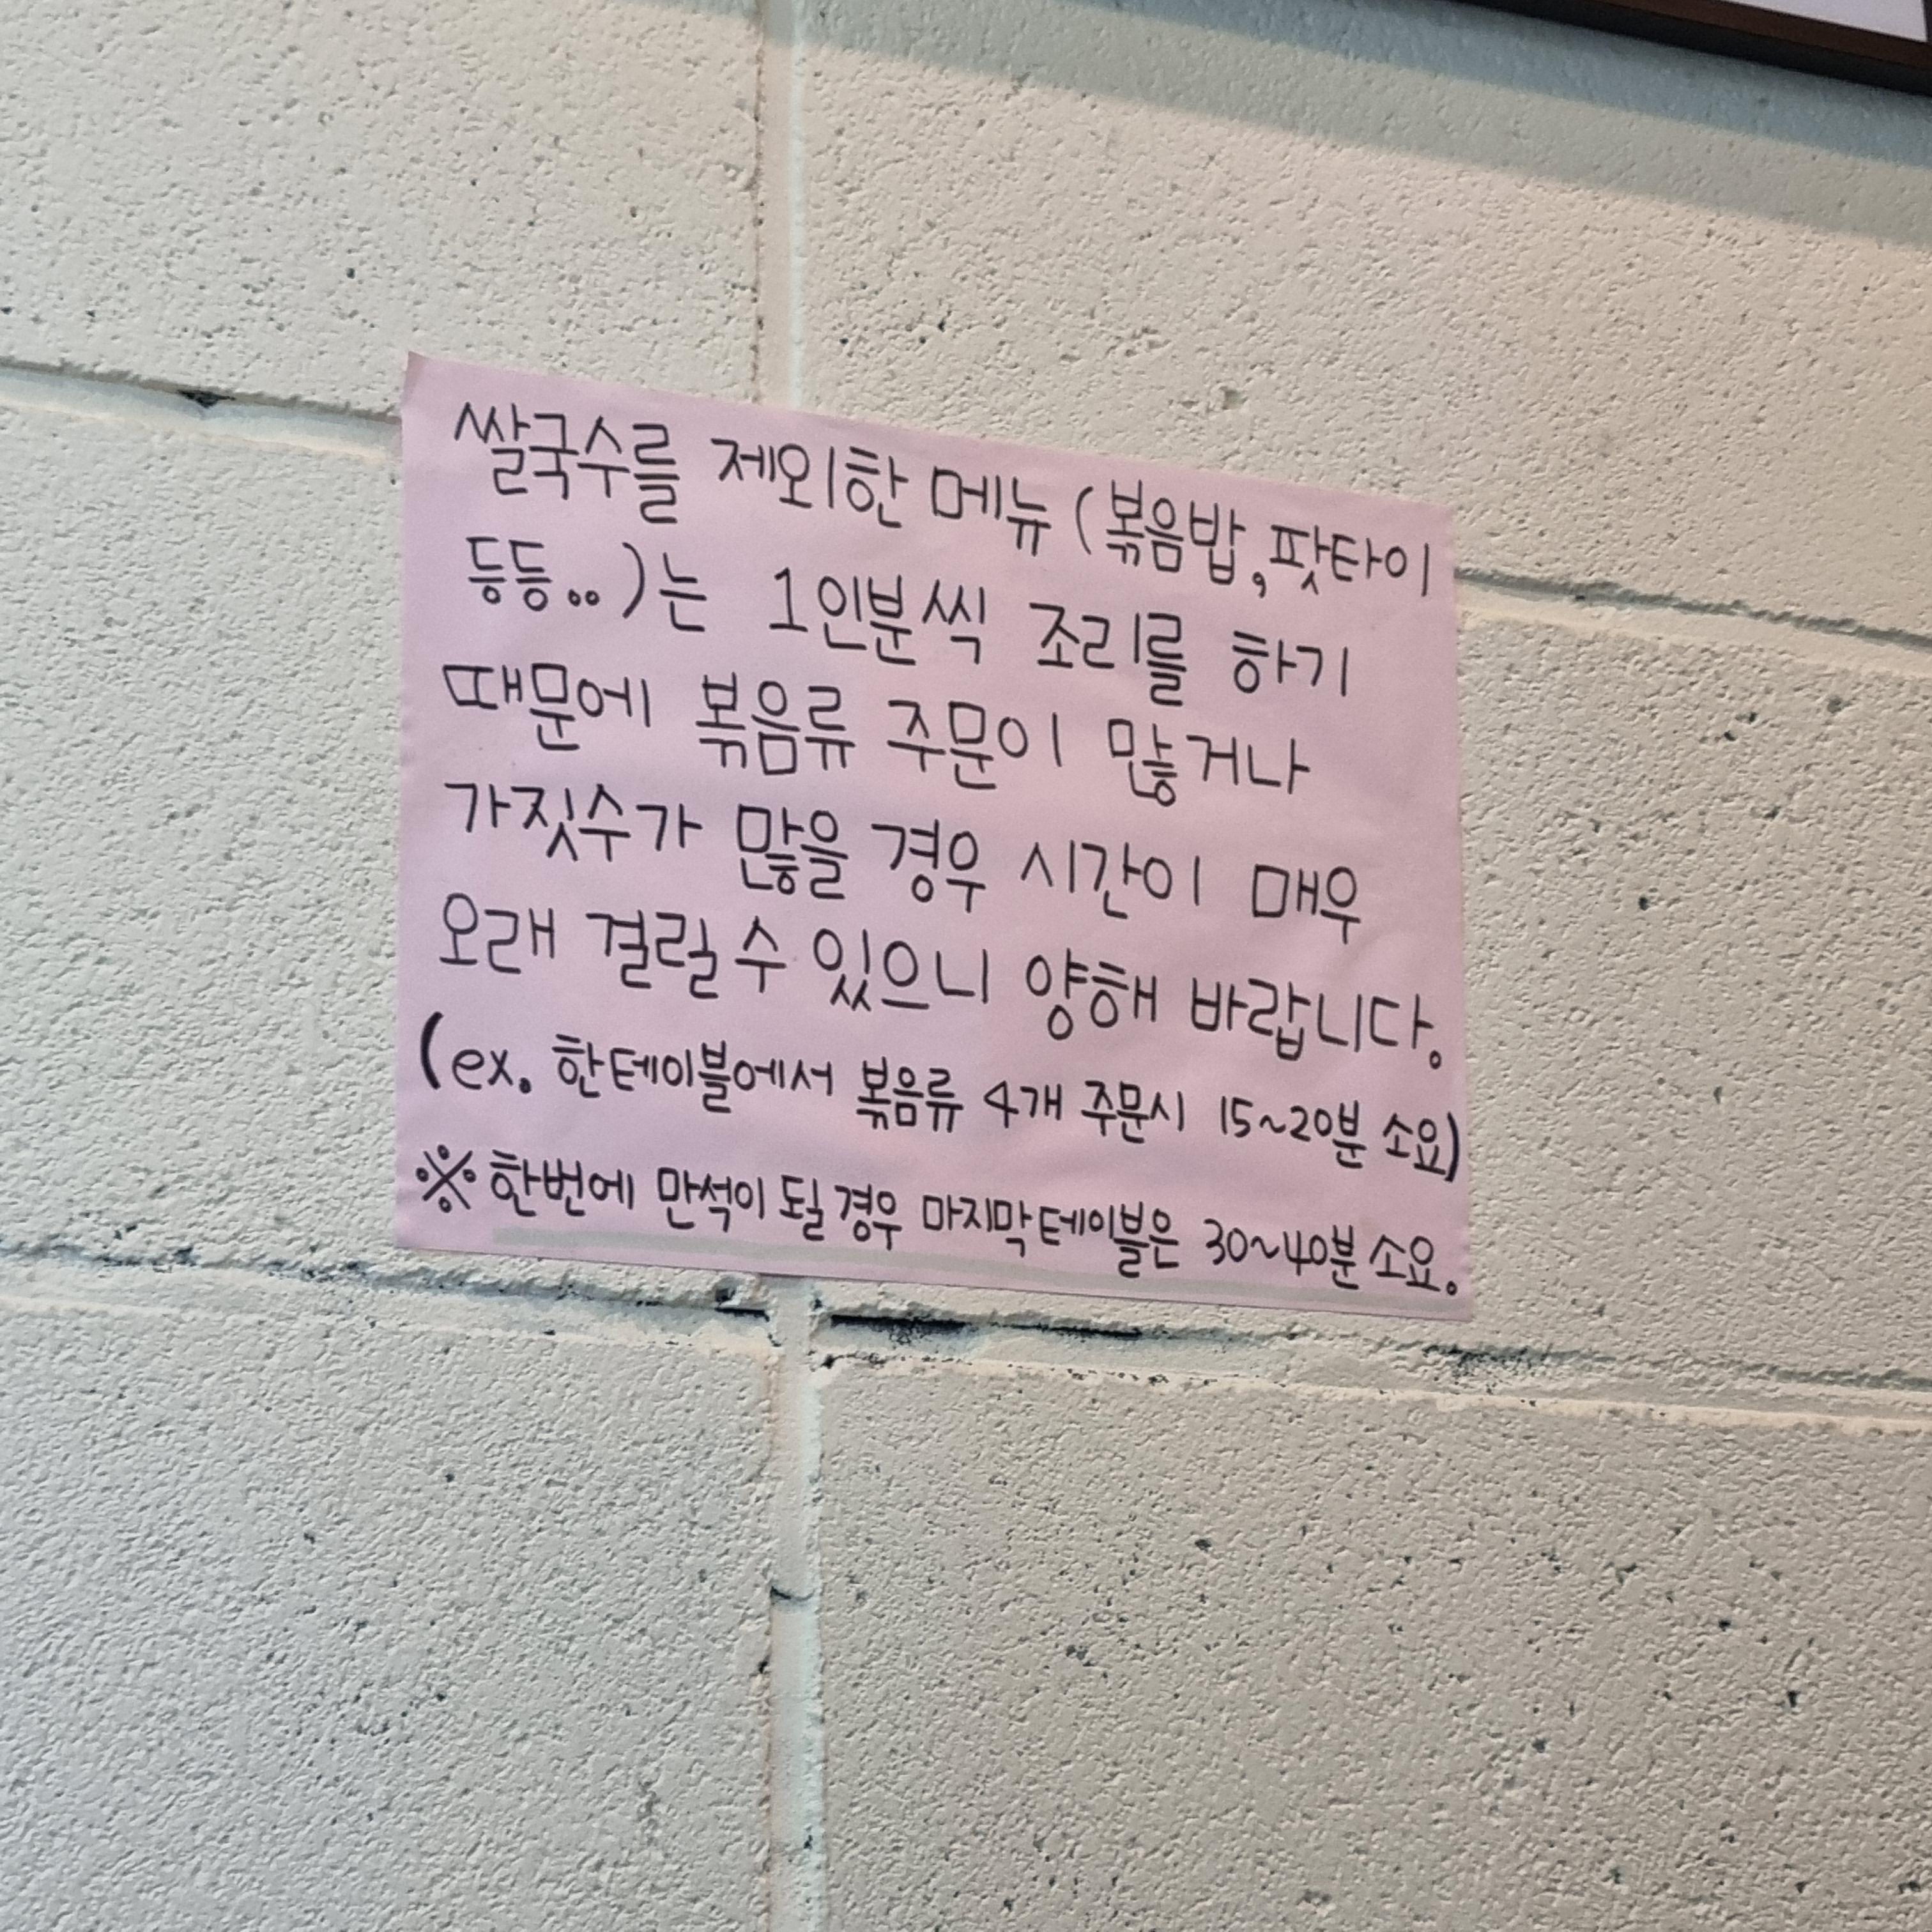 쌀국수를 제외한 메뉴 (볶음밥, 팟타이
등등..)는 1인분씩 조리를 하기
때문에 볶음류 주문이 많거나
가짓수가 많을 경우 시간이 매우
오래 걸릴 수 있으니 양해 바랍니다.
(ex. 한테이블에서 볶음류 4개 주문시 15~20분 소요)
※ 한번에 만석이 될 경우 마지막테이블은 30~40분 소요.